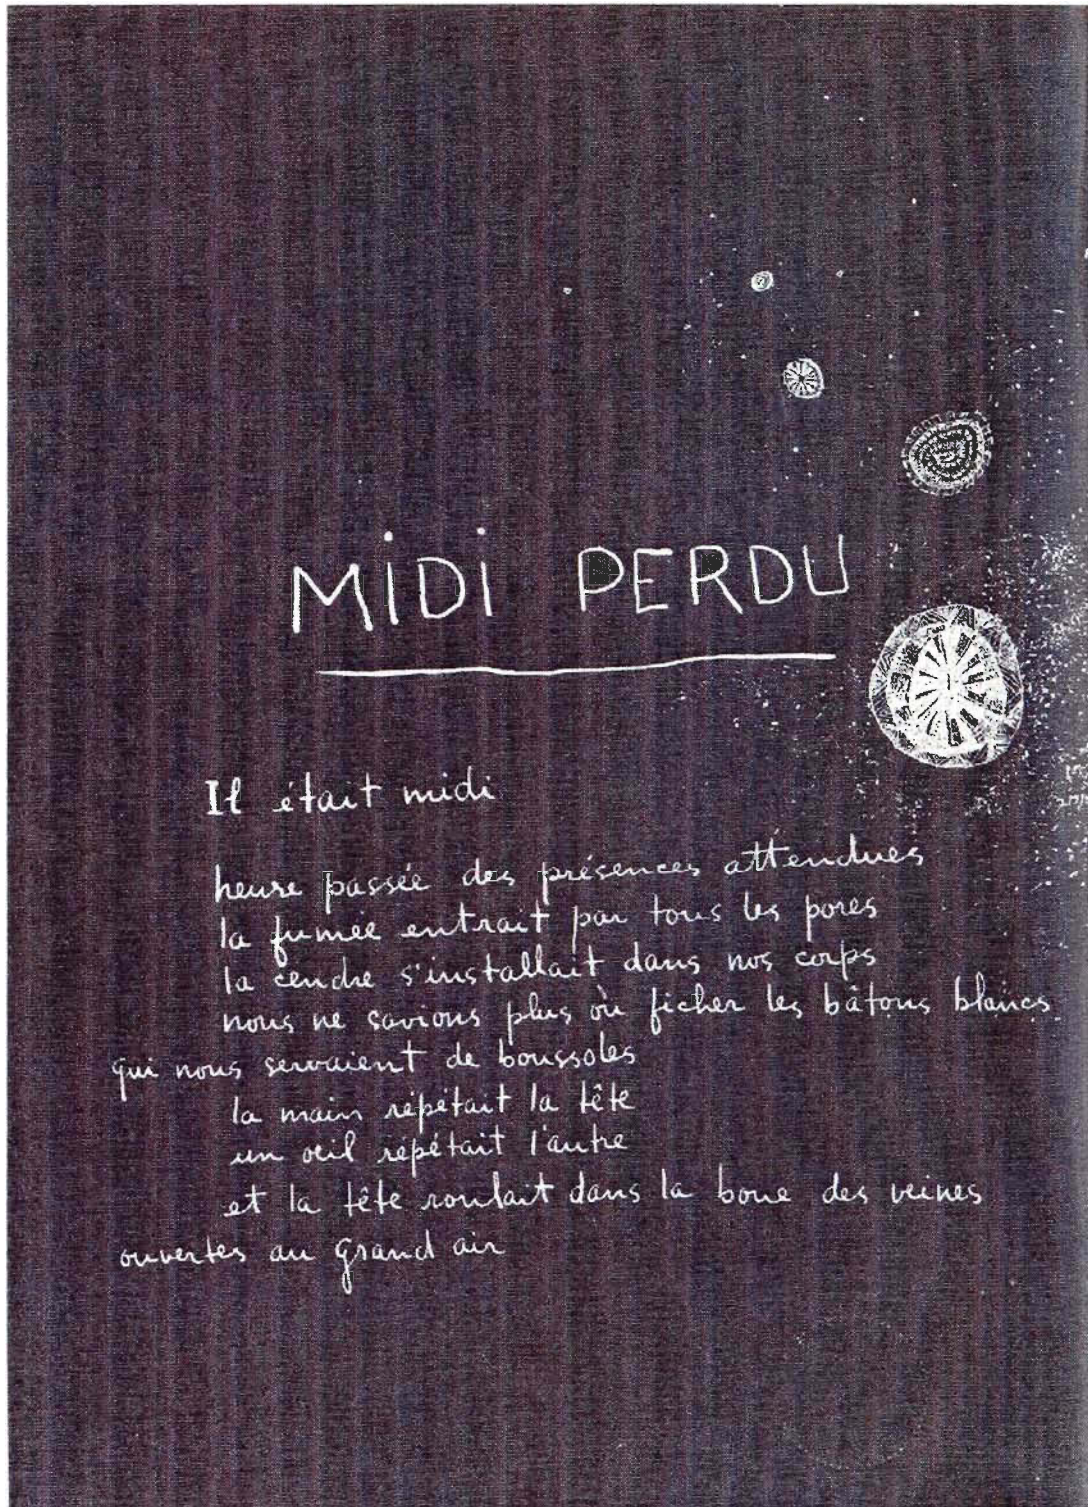 MiDi PERDU
Il était midi
heure passée des présences attendues
la fumée entrait par tous les pores
la cendre s'installait dans nos corps
nous ne savions plus où ficher les bâtons blancs
qui nous servaient de boussoles
la main répétait la tête
un oeil répétait l'autre
et la tête roulait dans la boue des veines
ouvertes au grand air